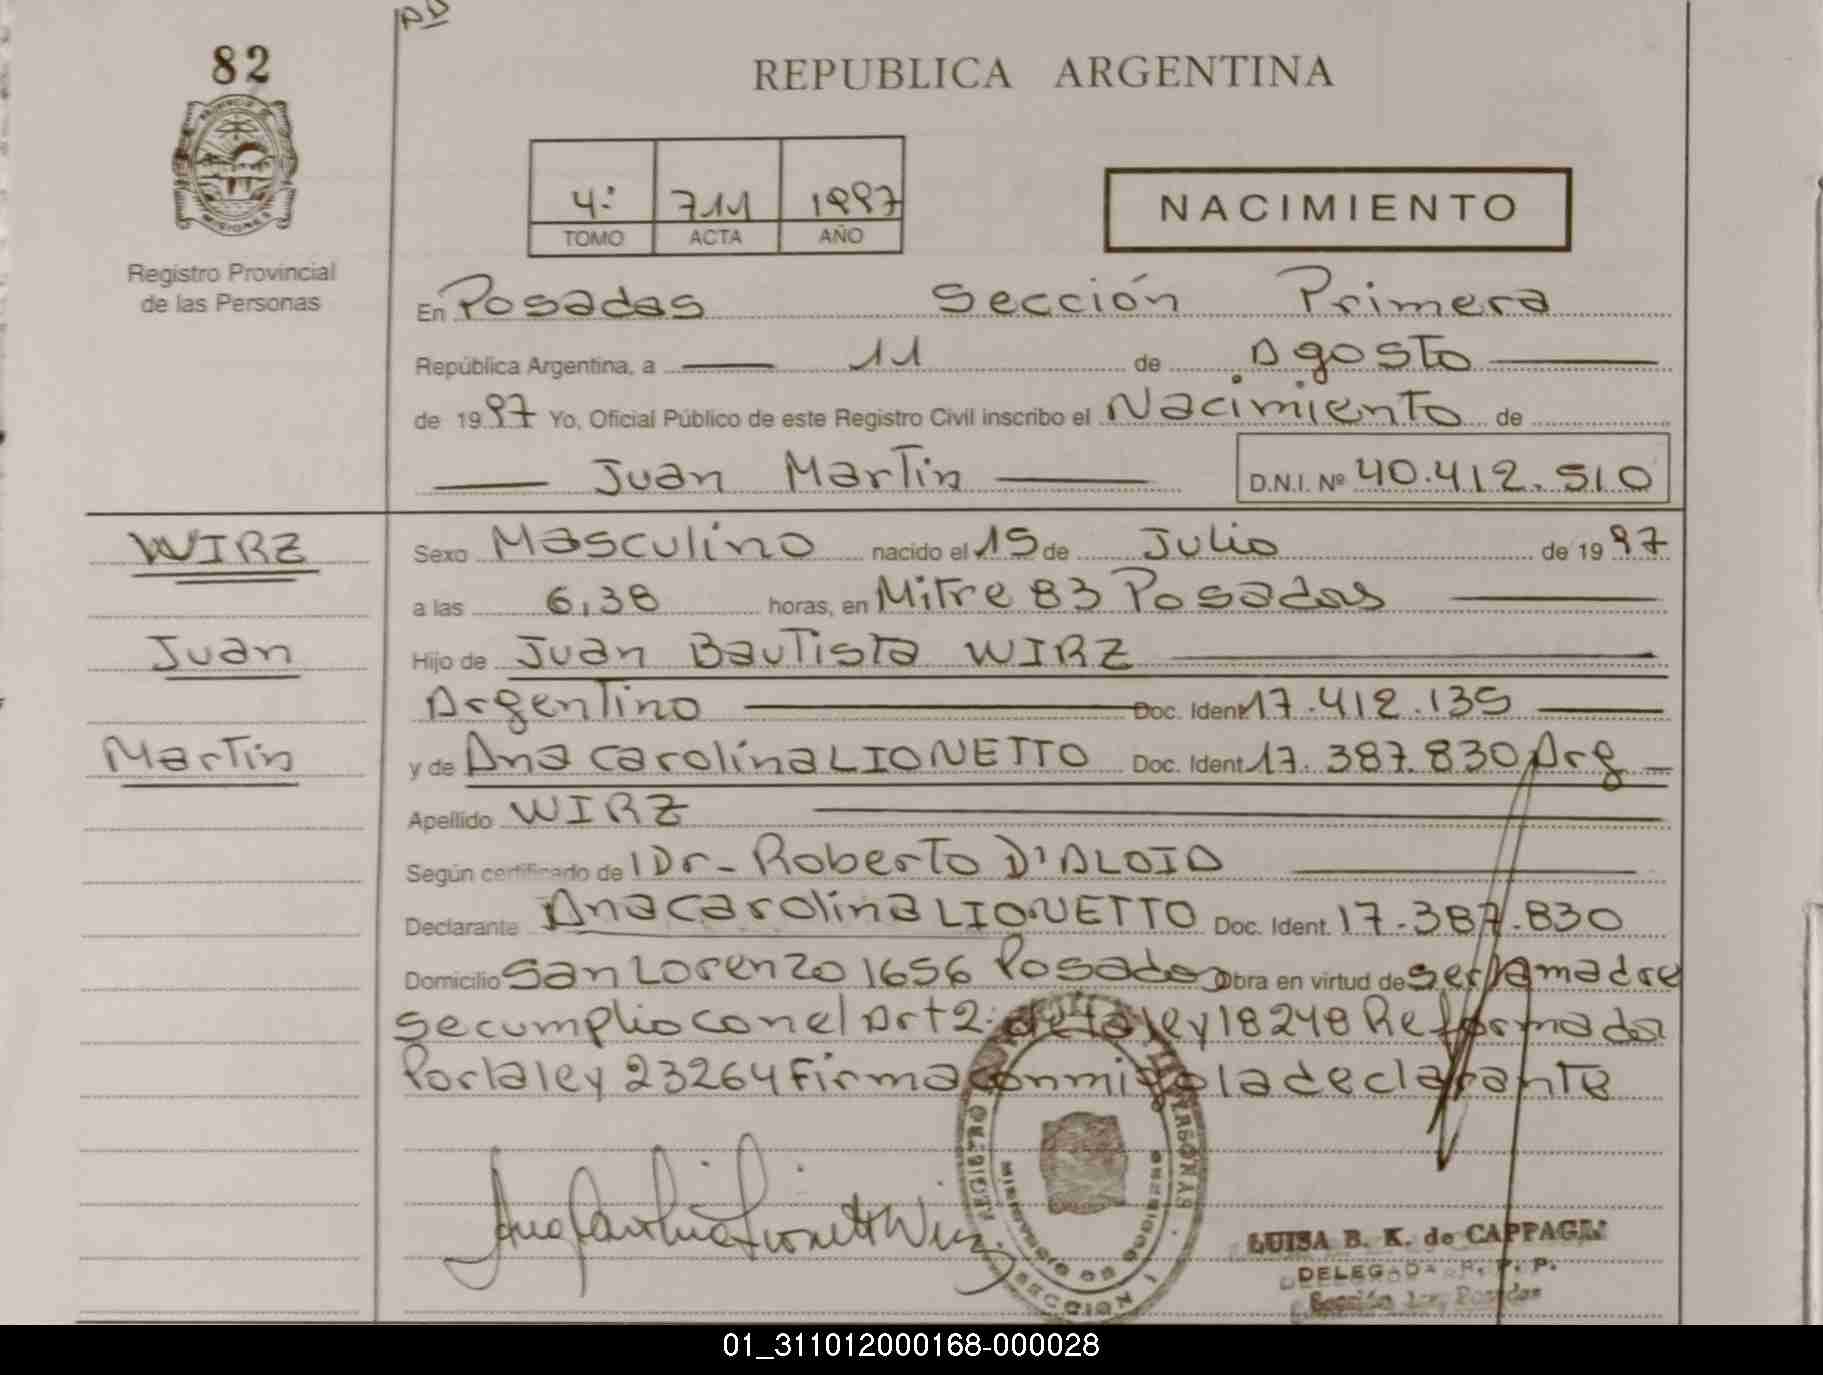 82
REPUBLICA ARGENTINA
4: 711 1997
TOMO ACTA AÑO
NACIMIENTO
Registro Provincial
de las Personas
En Posadas Sección Primera
República Argentina, a 11 de Agosto
de 1997 Yo, Oficial Público de este Registro Civil inscribo el Nacimiento de
Juan Martin D.N.I. Nº 40.412.510
WIRZ
Juan
Martin
Sexo Masculino nacido el 15 de Julio de 1997
a las 6,38 horas, en Mitre 83 Posadas
Hijo de Juan Bautista WIRZ
Argentino Doc. Ident 17.412.135
y de Ana Carolina LIONETTO Doc. Ident. 17.387.830 Arg
Apellido WIRZ
Según certificado de l Dr- Roberto D'ALOIA
Declarante Ana Carolina LIONETTO Doc. Ident. 17.387.830
Domicilio San Lorenzo 1656 Posadas Obra en virtud de ser la madre
se cumplio con el Art 2: de la ley 18248 Reformada
Por la ley 23264 Firma conmigo la declarante
LUISA B. K. de CAPPAGLI
DELEGADA R. P. P.
Sección 1ra, Posadas
01_311012000168-000028